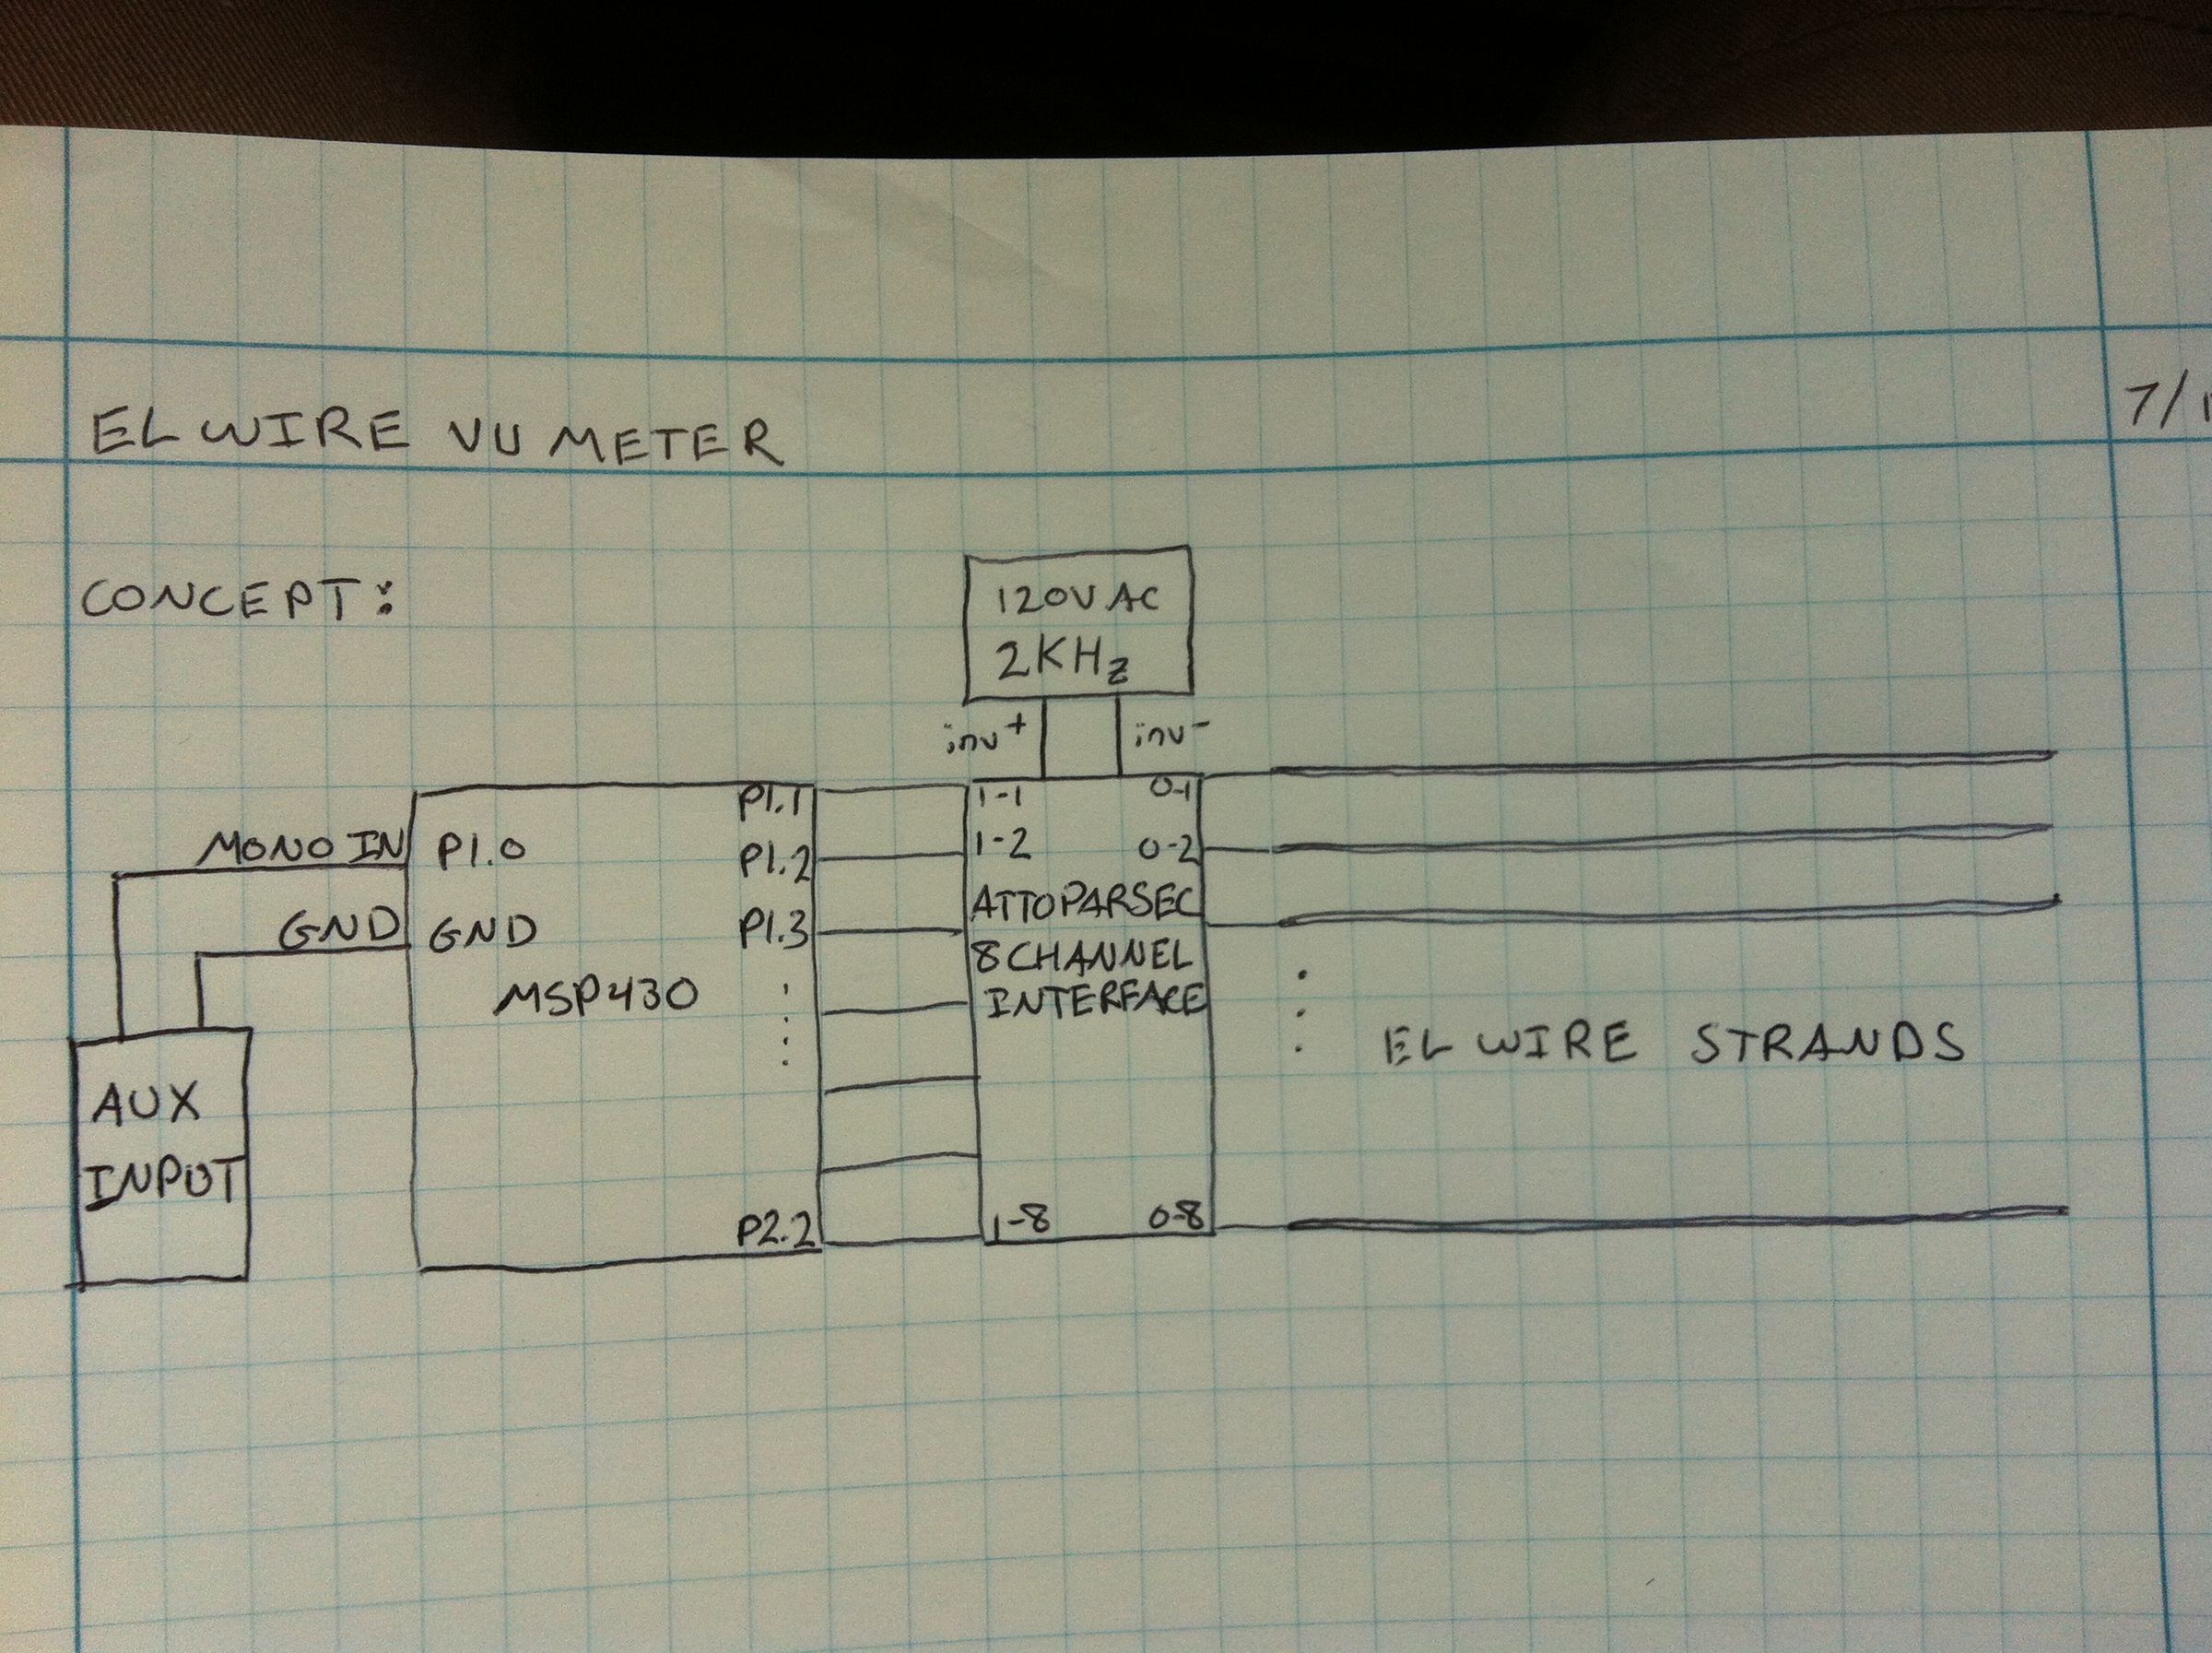 EL WIRE VU METER
7/1
CONCEPT:
120V AC
2KHz
inv+ inv-
P1.1 1-1 0-1
MONO IN P1.0 P1.2 1-2 0-2
GND GND P1.3 ATTOPARSEC
8 CHANNEL
MSP430 INTERFACE
EL WIRE STRANDS
AUX
INPUT
P2.2 1-8 0-8